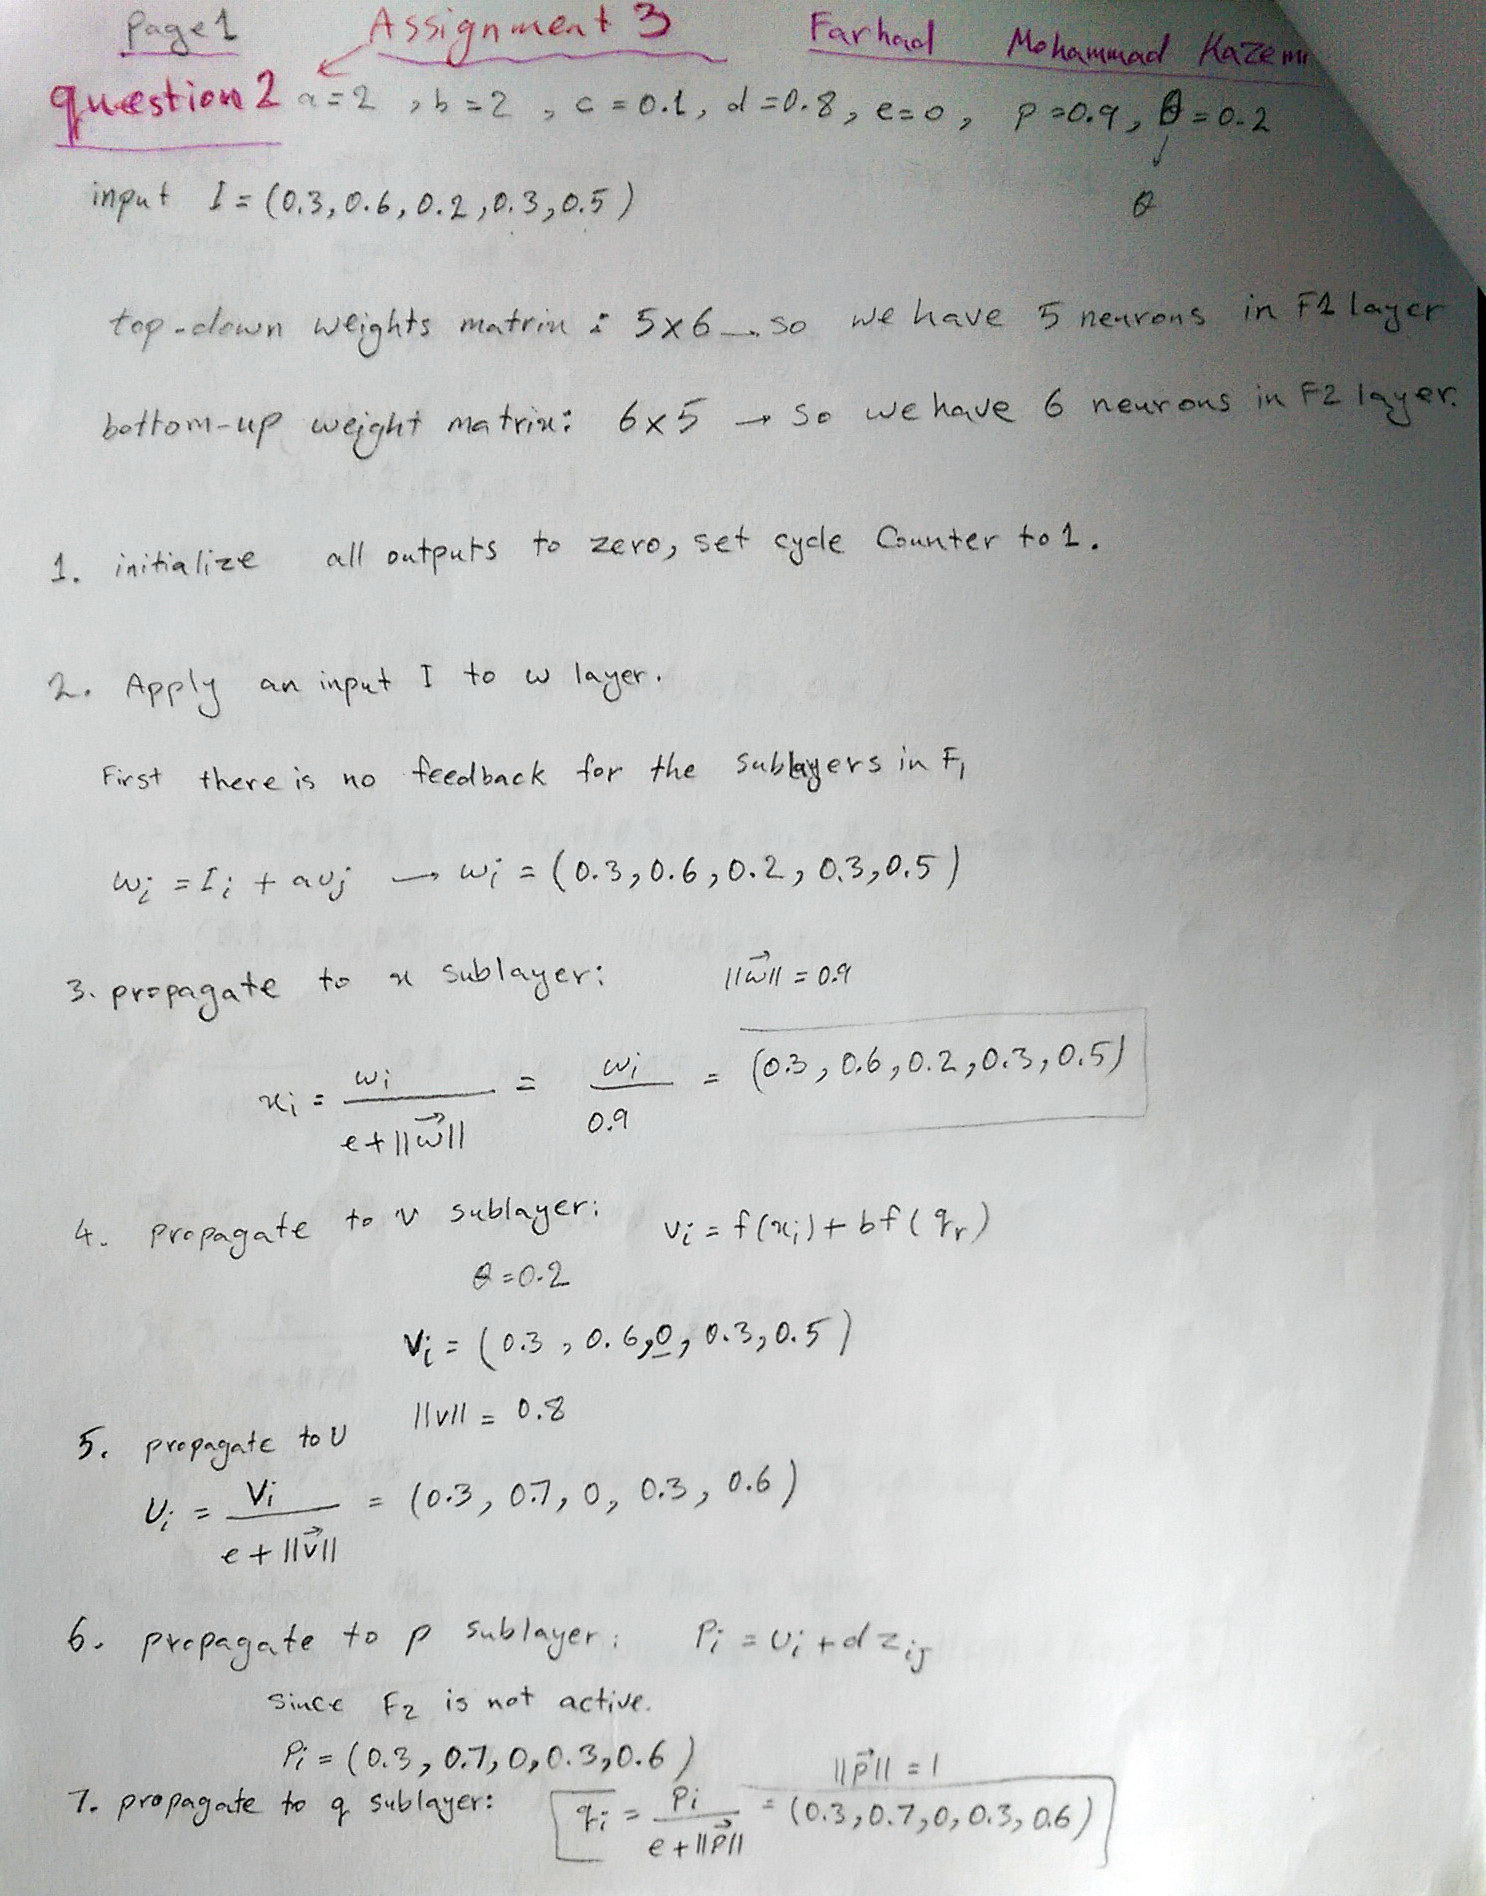 Page 1 Assignment 3 Farhad Mohammad Kazemi
question 2 a=2 , b=2 , c=0.1, d=0.8, e=0, p=0.9, θ=0.2
θ
input I = (0.3, 0.6, 0.2, 0.3, 0.5)
top-down weights matrix : 5x6 → so we have 5 neurons in F1 layer
bottom-up weight matrix: 6x5 → so we have 6 neurons in F2 layer.
1. initialize all outputs to zero, set cycle Counter to 1.
2. Apply an input I to w layer.
First there is no feedback for the sublayers in F₁
wᵢ = Iᵢ + auⱼ → wᵢ = (0.3, 0.6, 0.2, 0.3, 0.5)
3. propagate to x sublayer: ||w⃗|| = 0.9
xᵢ = wᵢ / (e+||w⃗||) = wᵢ / 0.9 = (0.3, 0.6, 0.2, 0.3, 0.5)
4. propagate to v sublayer: vᵢ = f(xᵢ) + bf(qᵣ)
θ = 0.2
Vᵢ = (0.3, 0.6, 0, 0.3, 0.5)
||v|| = 0.8
5. propagate to U
Uᵢ = Vᵢ / (e + ||v⃗||) = (0.3, 0.7, 0, 0.3, 0.6)
6. propagate to p sublayer: Pᵢ = Uᵢ + d zᵢⱼ
Since F₂ is not active.
Pᵢ = (0.3, 0.7, 0, 0.3, 0.6) ||p⃗|| = 1
7. propagate to q sublayer: qᵢ = Pᵢ / (e + ||P⃗||) = (0.3, 0.7, 0, 0.3, 0.6)